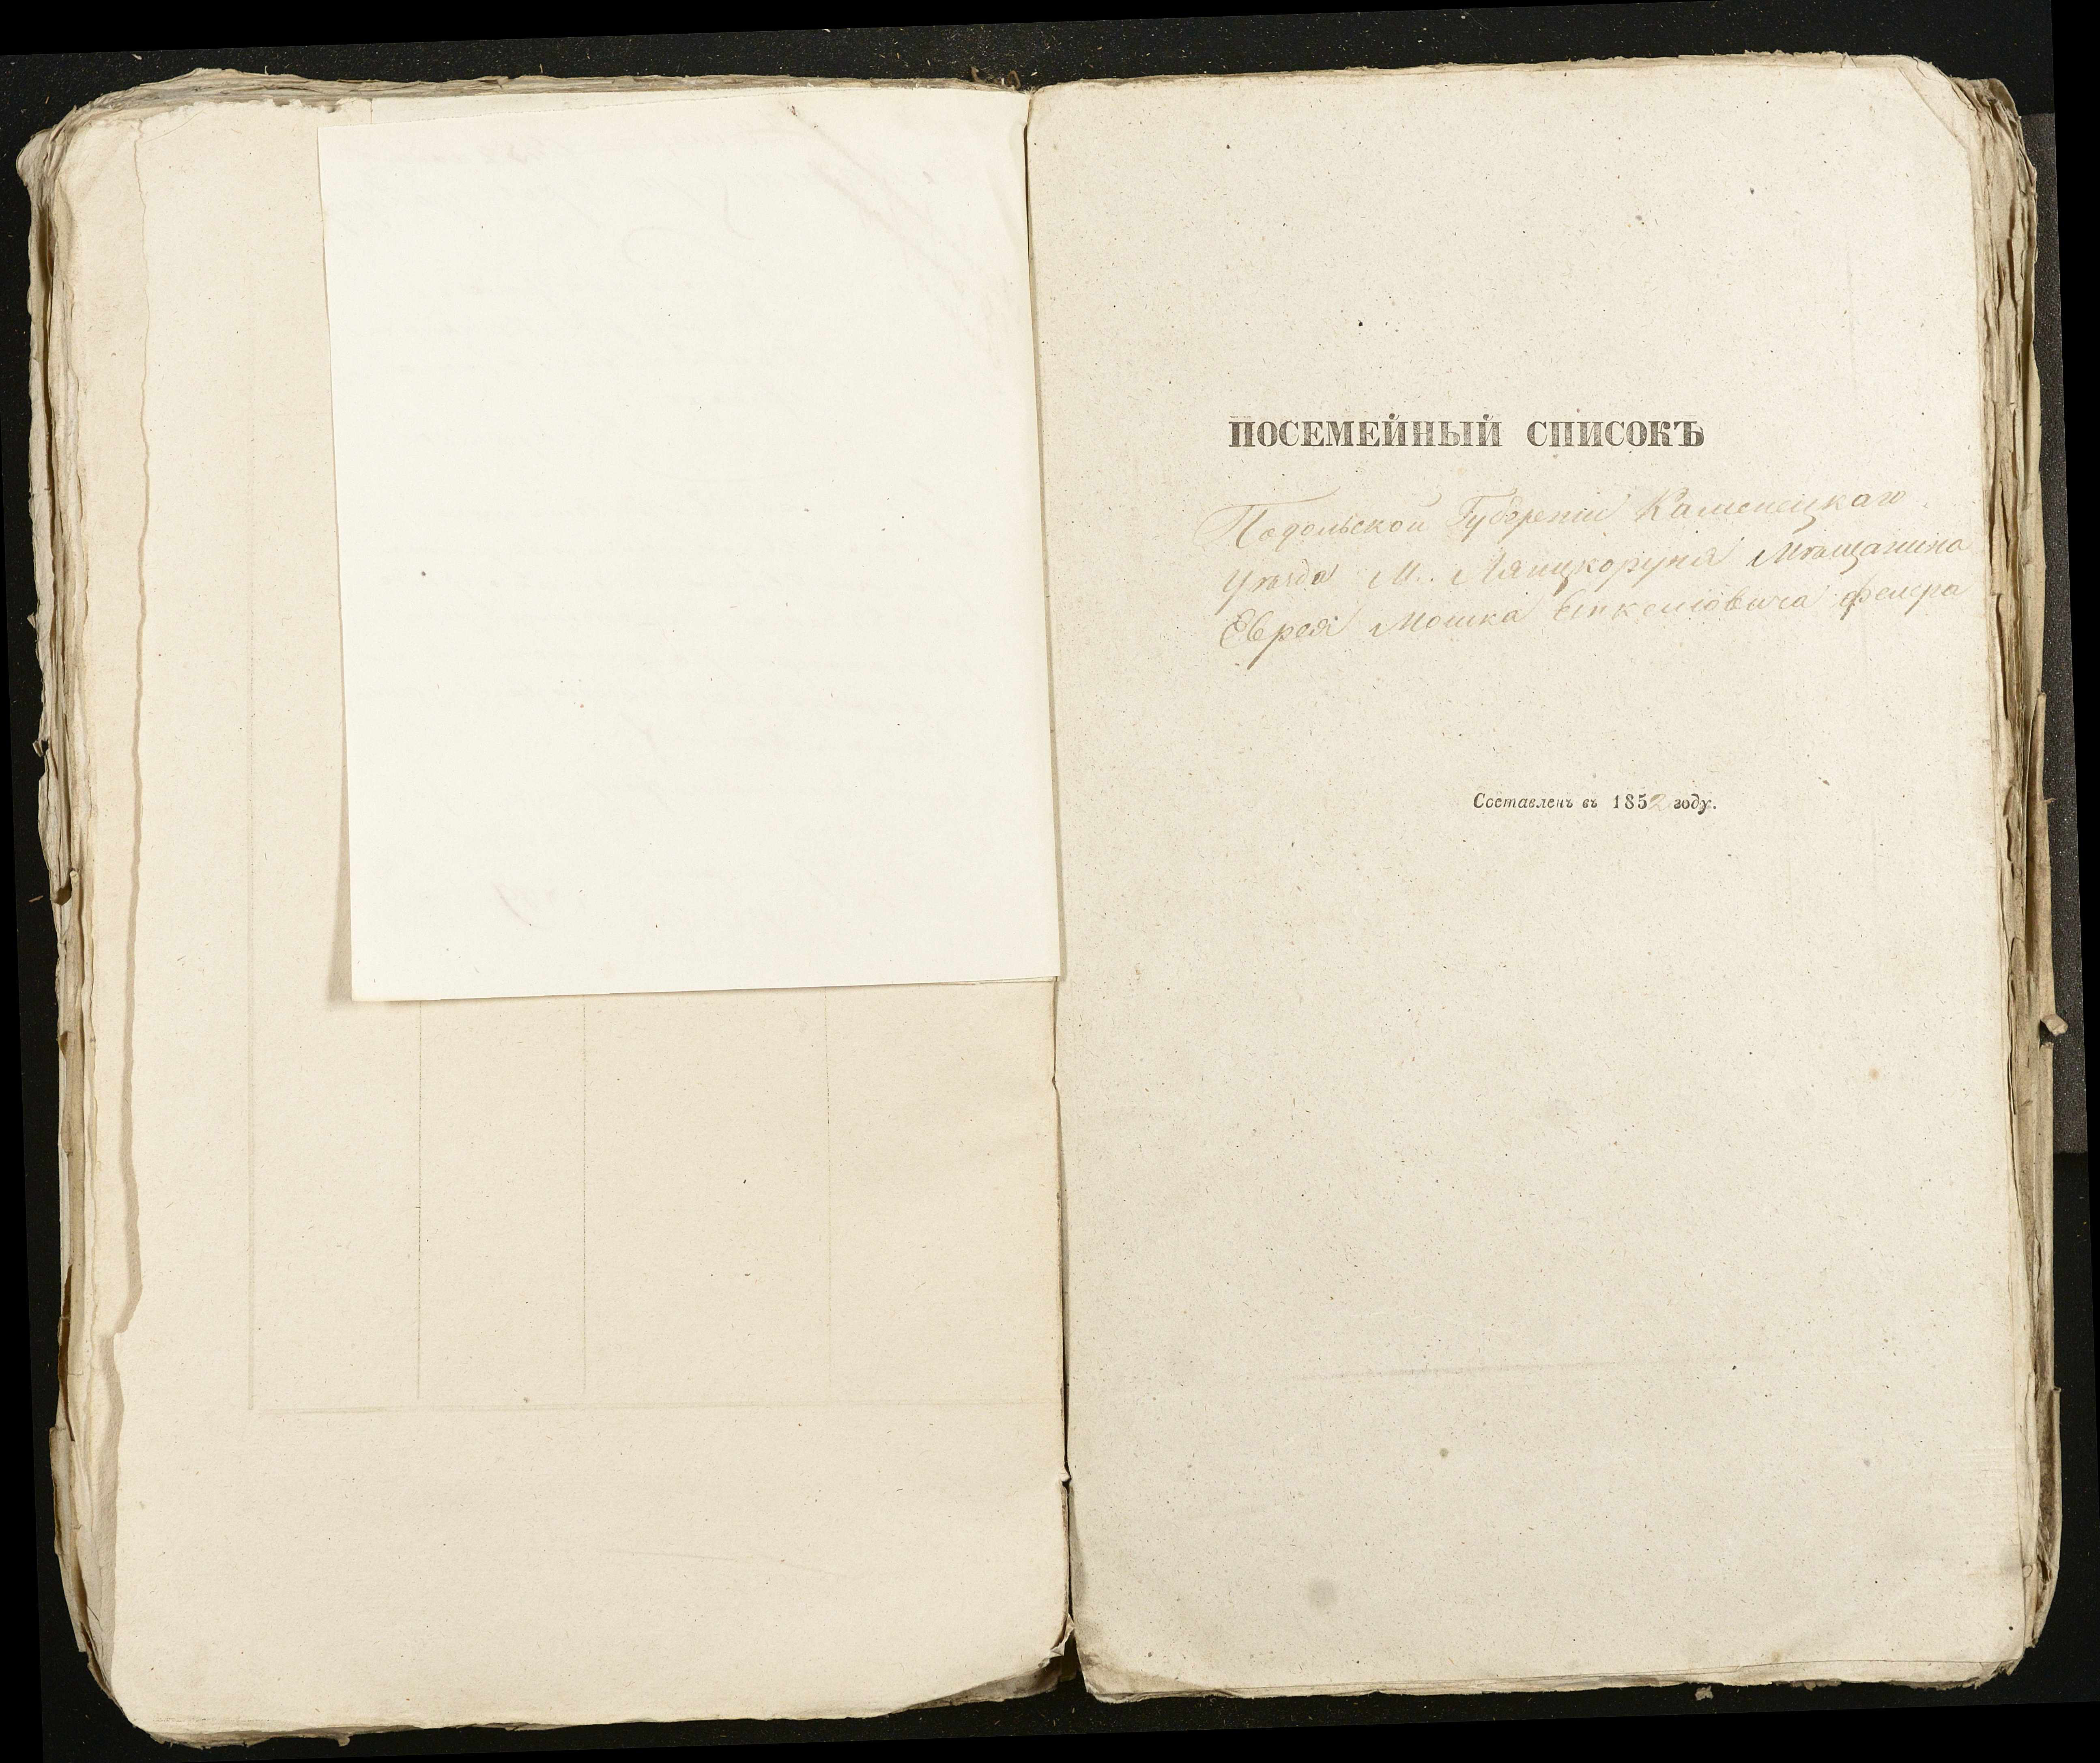 ПОСЕМЕЙНЫЙ СПИСОКЪ
Подольской Губерніи Каменецкаго
Уѣзда М. Ляцкоруня Мѣщанина
Еврея Мошка Іткомовича Фелера
Составленъ въ 1852 году.